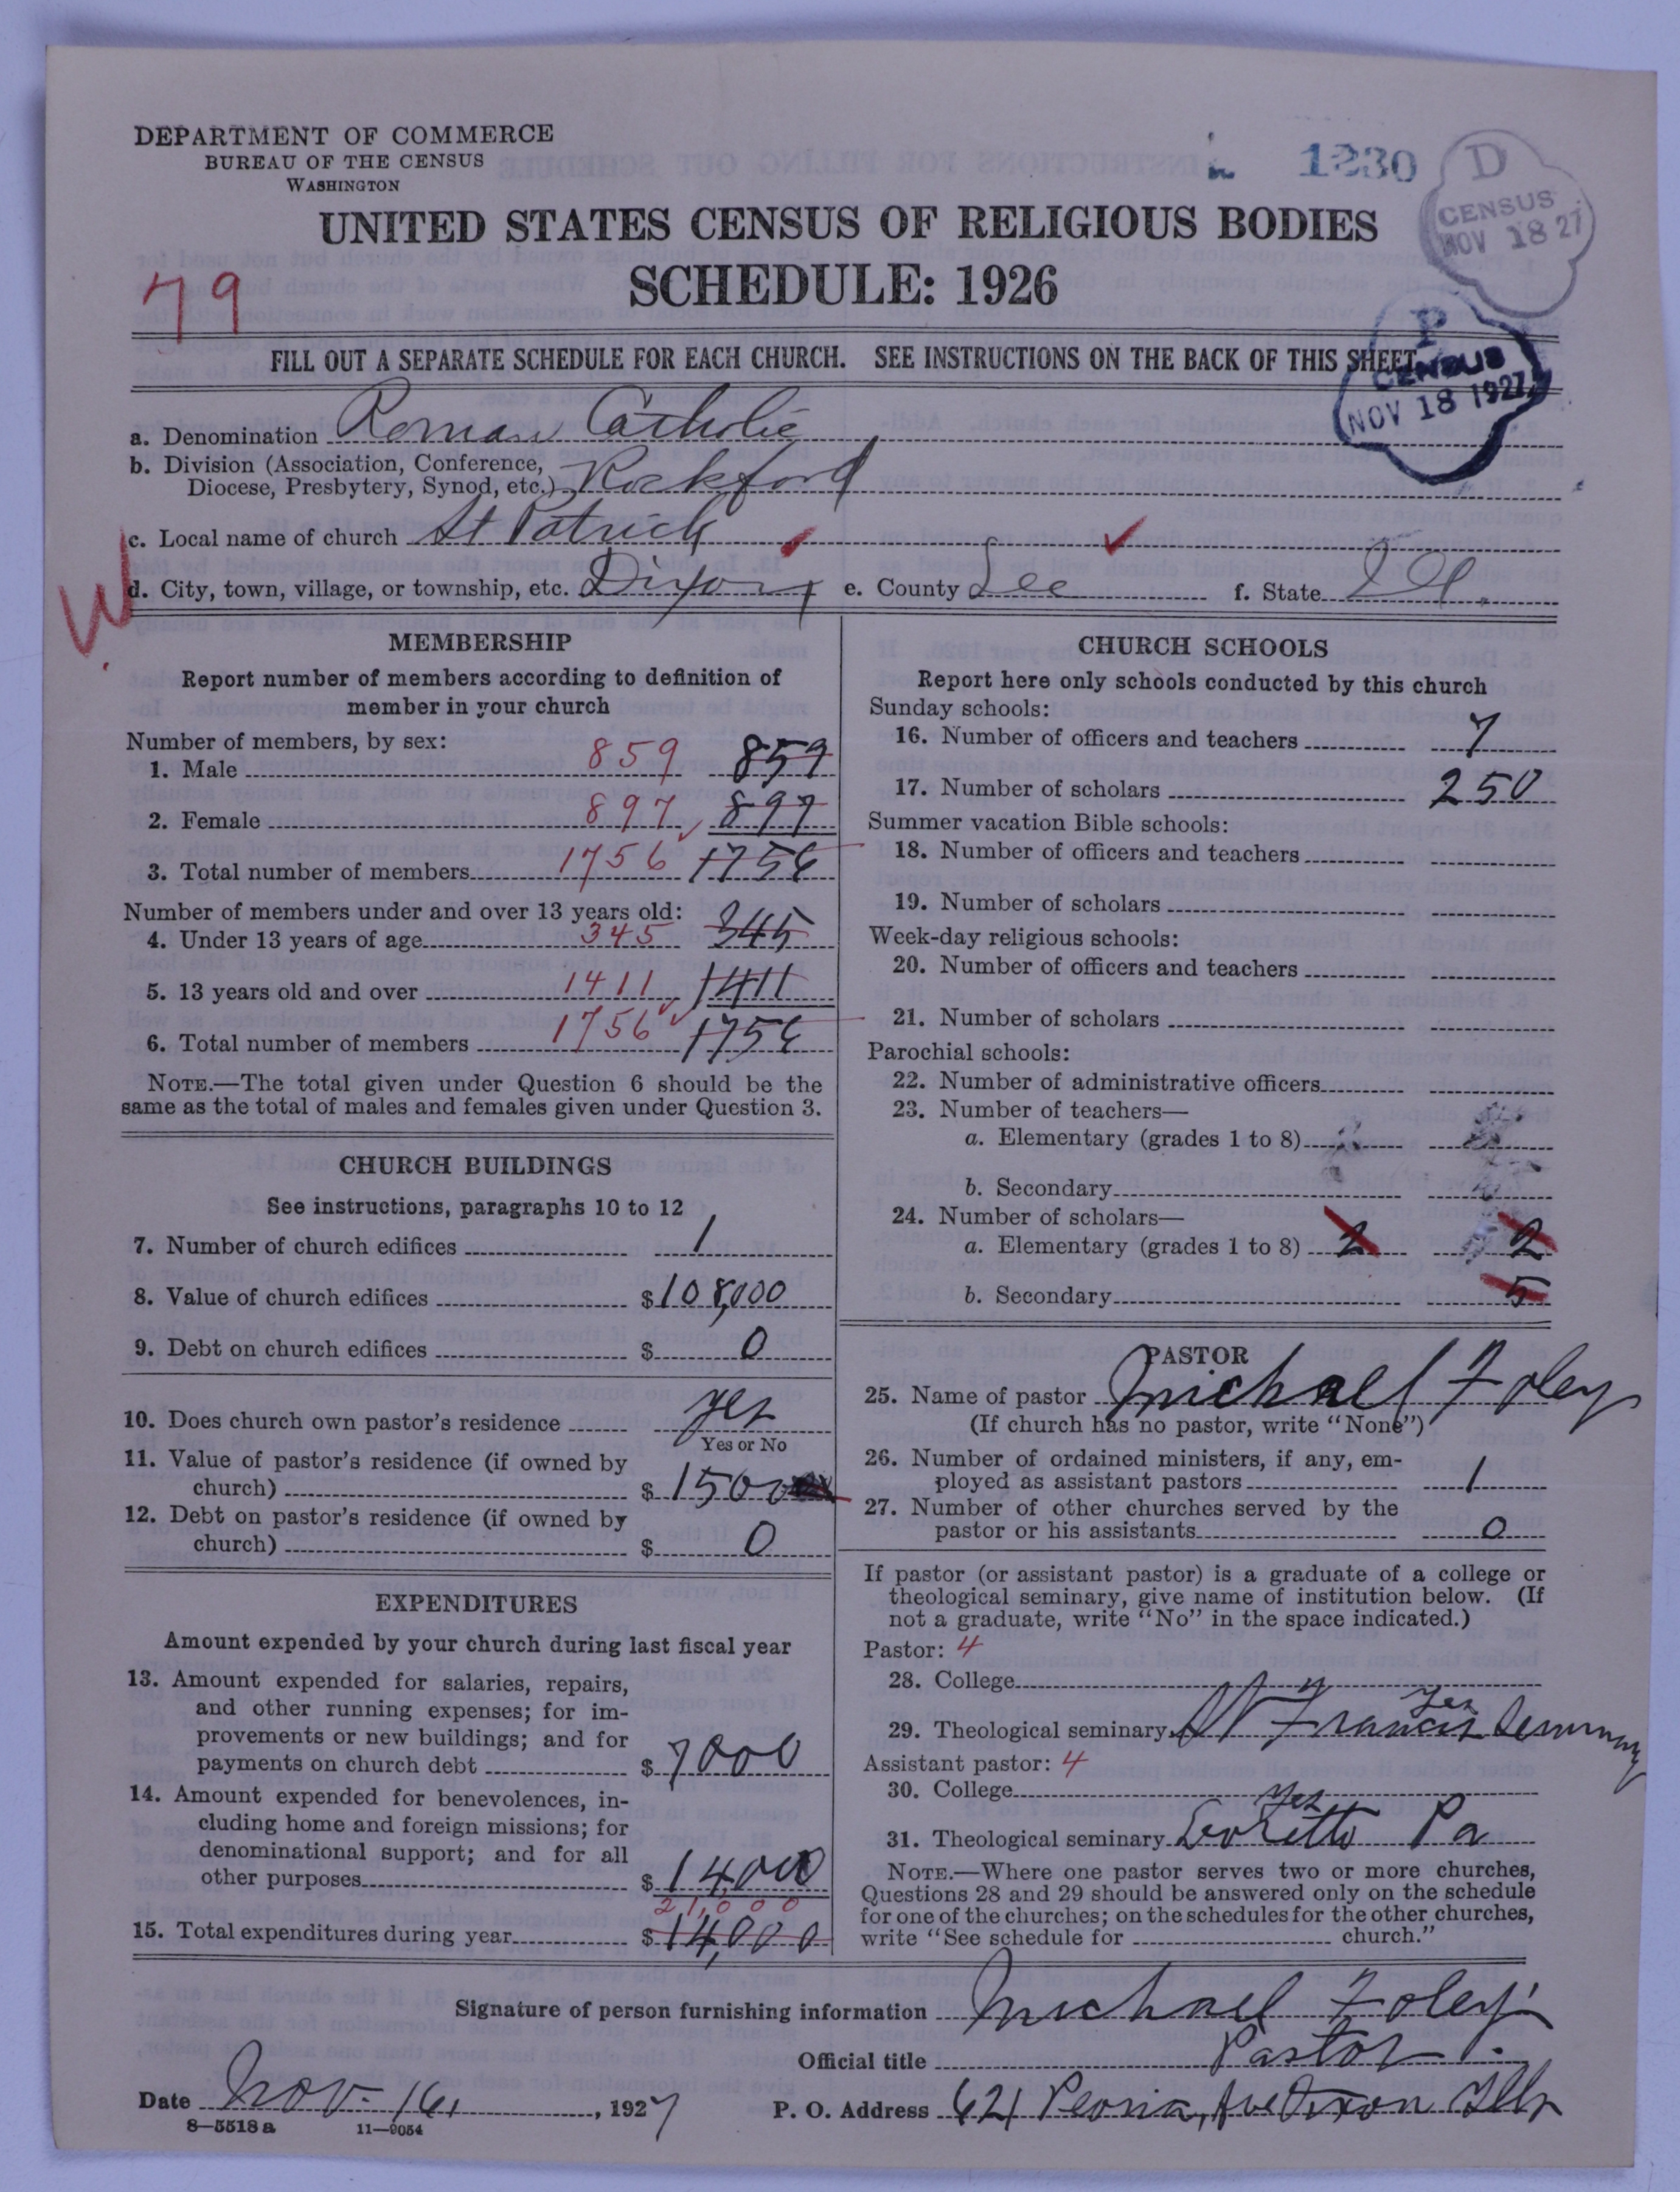 DEPARTMENT OF COMMERCE
BUREAU OF THE CENSUS
WASHINGTON
1230
D
CENSUS
NOV 18 27
UNITED STATES CENSUS OF RELIGIOUS BODIES
SCHEDULE: 1926
79
P
CENSUS
NOV 18 1927
FILL OUT A SEPARATE SCHEDULE FOR EACH CHURCH. SEE INSTRUCTIONS ON THE BACK OF THIS SHEET
a. Denomination Roman Catholic
b. Division (Association, Conference,
Diocese, Presbytery, Synod, etc.) Rockford
c. Local name of church St Patrick
W
d. City, town, village, or township, etc. Dixon e. County Lee f. State Ill.
MEMBERSHIP
Report number of members according to definition of
member in your church
Number of members, by sex:
1. Male 859 859
2. Female 897 897
3. Total number of members 1756 1756
Number of members under and over 13 years old:
4. Under 13 years of age 345 345
5. 13 years old and over 1411 1411
6. Total number of members 1756 1756
NOTE.—The total given under Question 6 should be the
same as the total of males and females given under Question 3.
CHURCH BUILDINGS
See instructions, paragraphs 10 to 12
7. Number of church edifices 1
8. Value of church edifices $108,000
9. Debt on church edifices $ 0
10. Does church own pastor's residence yes
Yes or No
11. Value of pastor's residence (if owned by
church) $ 1500
12. Debt on pastor's residence (if owned by
church) $ 0
EXPENDITURES
Amount expended by your church during last fiscal year
13. Amount expended for salaries, repairs,
and other running expenses; for im-
provements or new buildings; and for
payments on church debt $ 7000
14. Amount expended for benevolences, in-
cluding home and foreign missions; for
denominational support; and for all
other purposes $ 14,000
21,000
15. Total expenditures during year $ 14,000
CHURCH SCHOOLS
Report here only schools conducted by this church
Sunday schools:
16. Number of officers and teachers 7
17. Number of scholars 250
Summer vacation Bible schools:
18. Number of officers and teachers
19. Number of scholars
Week-day religious schools:
20. Number of officers and teachers
21. Number of scholars
Parochial schools:
22. Number of administrative officers
23. Number of teachers—
a. Elementary (grades 1 to 8)
b. Secondary
24. Number of scholars—
a. Elementary (grades 1 to 8) 2 2
b. Secondary 5
PASTOR
25. Name of pastor Michael Foley
(If church has no pastor, write "None")
26. Number of ordained ministers, if any, em-
ployed as assistant pastors 1
27. Number of other churches served by the
pastor or his assistants 0
If pastor (or assistant pastor) is a graduate of a college or
theological seminary, give name of institution below. (If
not a graduate, write "No" in the space indicated.)
Pastor: 4
28. College
yes
29. Theological seminary St Francis Seminary
Assistant pastor: 4
30. College
yes
31. Theological seminary Loretto Pa
NOTE.—Where one pastor serves two or more churches,
Questions 28 and 29 should be answered only on the schedule
for one of the churches; on the schedules for the other churches,
write "See schedule for church."
Signature of person furnishing information Michael Foley
Official title Pastor
Date Nov- 16, 1927 P. O. Address 621 Peoria, Ave Dixon Ills
8—5518a 11—9054